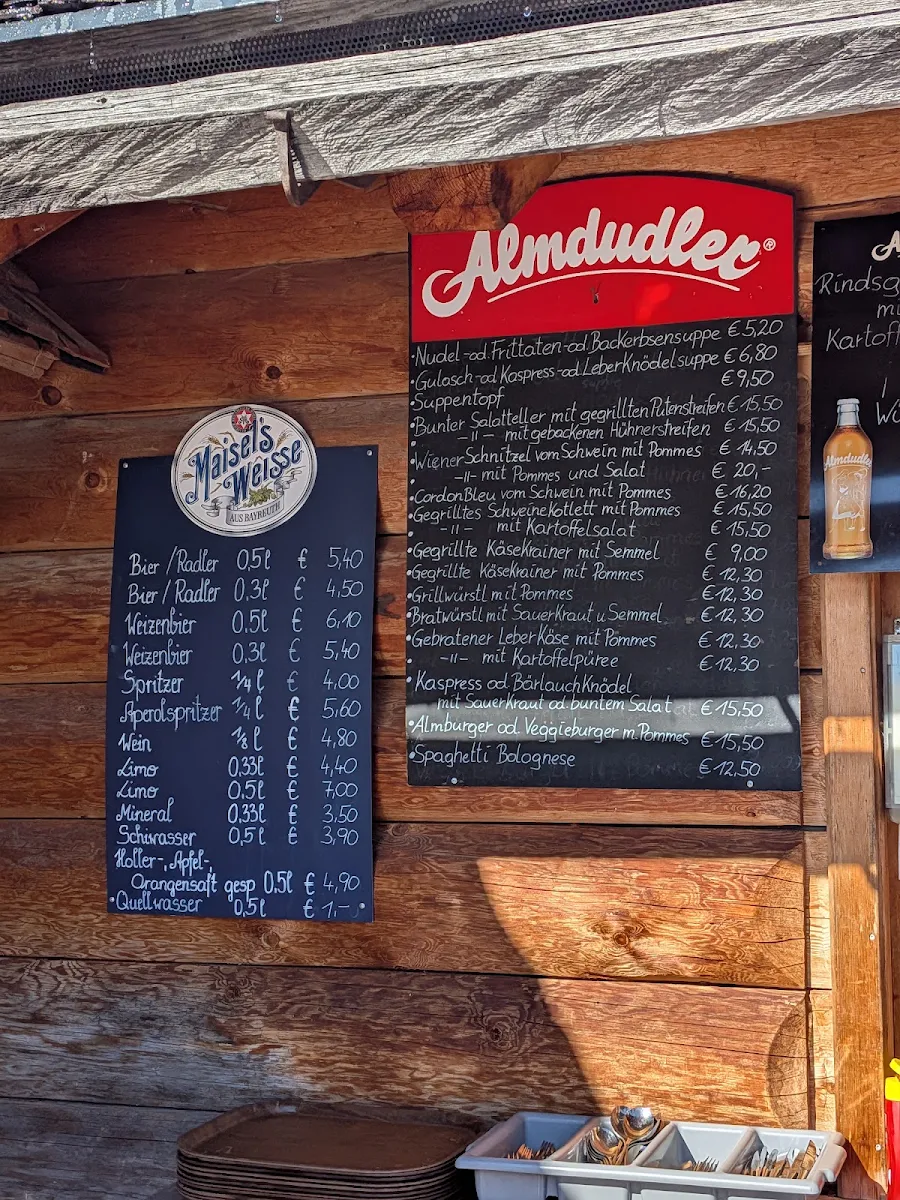 Maisel's
Weisse
AUS BAYREUTH
Bier/Radler 0,5l € 5,40
Bier/Radler 0,3l € 4,50
Weizenbier 0,5l € 6,10
Weizenbier 0,3l € 5,40
Spritzer 1/4 l € 4,00
Aperolspritzer 1/4 l € 5,60
Wein 1/8 l € 4,80
Limo 0,33l € 4,40
Limo 0,5l € 7,00
Mineral 0,33l € 3,50
Schiwasser 0,5l € 3,90
Holler-, Apfel-,
Orangensaft gesp 0,5l € 4,90
• Quellwasser 0,5l € 1,-
Almdudler®
• Nudel-od. Frittaten-od Backerbsensuppe € 5,20
• Gulasch-od Kaspress-od LeberKnödelsuppe € 6,80
• Suppentopf € 9,50
• Bunter Salatteller mit gegrillten Putenstreifen € 15,50
-"- mit gebackenen Hühnerstreifen € 15,50
• Wiener Schnitzel vom Schwein mit Pommes € 14,50
• -"- mit Pommes und Salat € 20,-
• Cordon Bleu vom Schwein mit Pommes € 16,20
• Gegrilltes Schweinekotlett mit Pommes € 15,50
-"- mit Kartoffelsalat € 15,50
• Gegrillte Käsekrainer mit Semmel € 9,00
• Gegrillte Käsekrainer mit Pommes € 12,30
• Grillwürstl mit Pommes € 12,30
• Bratwürstl mit Sauerkraut u. Semmel € 12,30
• Gebratener LeberKäse mit Pommes € 12,30
-"- mit Kartoffelpüree € 12,30
• Kaspress od BärlauchKnödel
mit Sauerkraut od. buntem Salat € 15,50
• Almburger od. Veggieburger m. Pommes € 15,50
• Spaghetti Bolognese € 12,50
Rindsg
mi
Kartoff
Wü
Almdudler